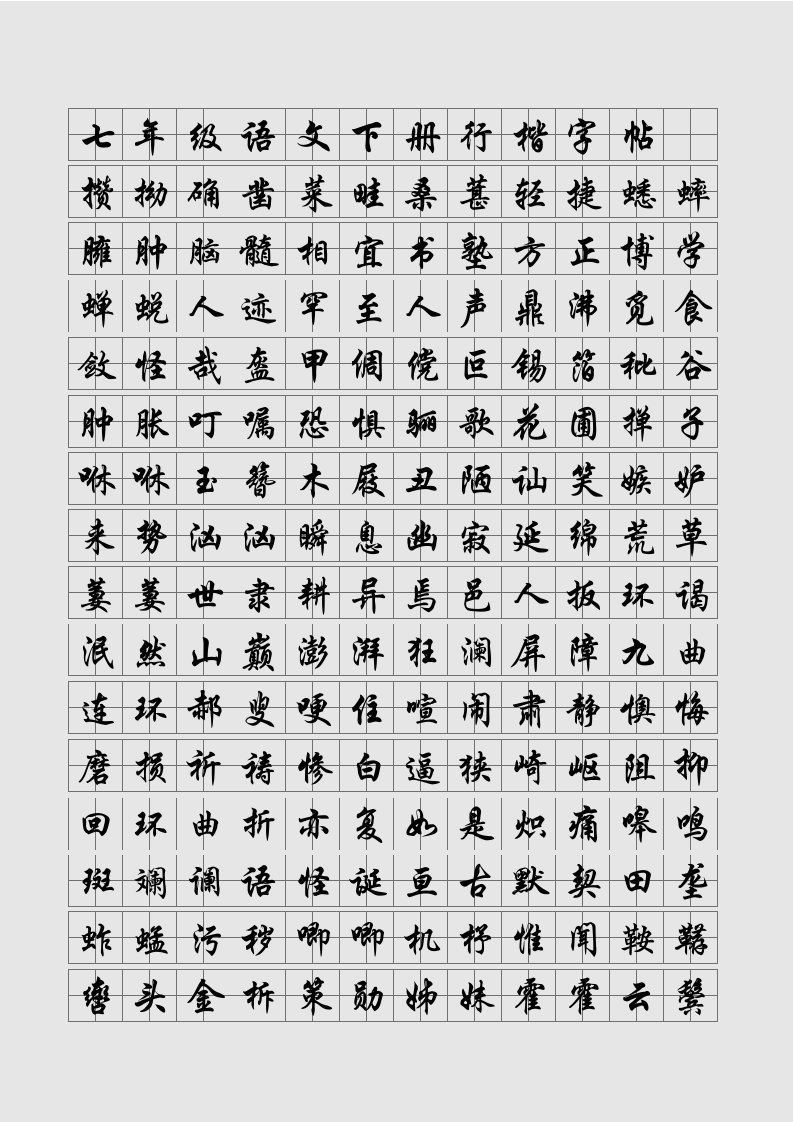 七年级语文下册行楷字帖
攒拗确凿菜畦桑葚轻捷蟋蟀
臃肿脑髓相宜书塾方正博学
蝉蜕人迹罕至人声鼎沸觅食
敛怪哉盔甲倜傥叵锡箔秕谷
肿胀叮嘱恐惧骊歌花圃掸子
咻咻玉簪木屐丑陋讪笑嫉妒
来势汹汹瞬息幽寂延绵荒草
萋萋世隶耕异焉邑人扳环谒
泯然山巅澎湃狂澜屏障九曲
连环郝叟哽住喧闹肃静懊悔
磨损祈祷惨白逼狭崎岖阻抑
回环曲折亦复如是炽痛嗥鸣
斑斓谰语怪诞亘古默契田垄
蚱蜢污秽唧唧机杼惟闻鞍鞯
辔头金柝策勋姊妹霍霍云鬓